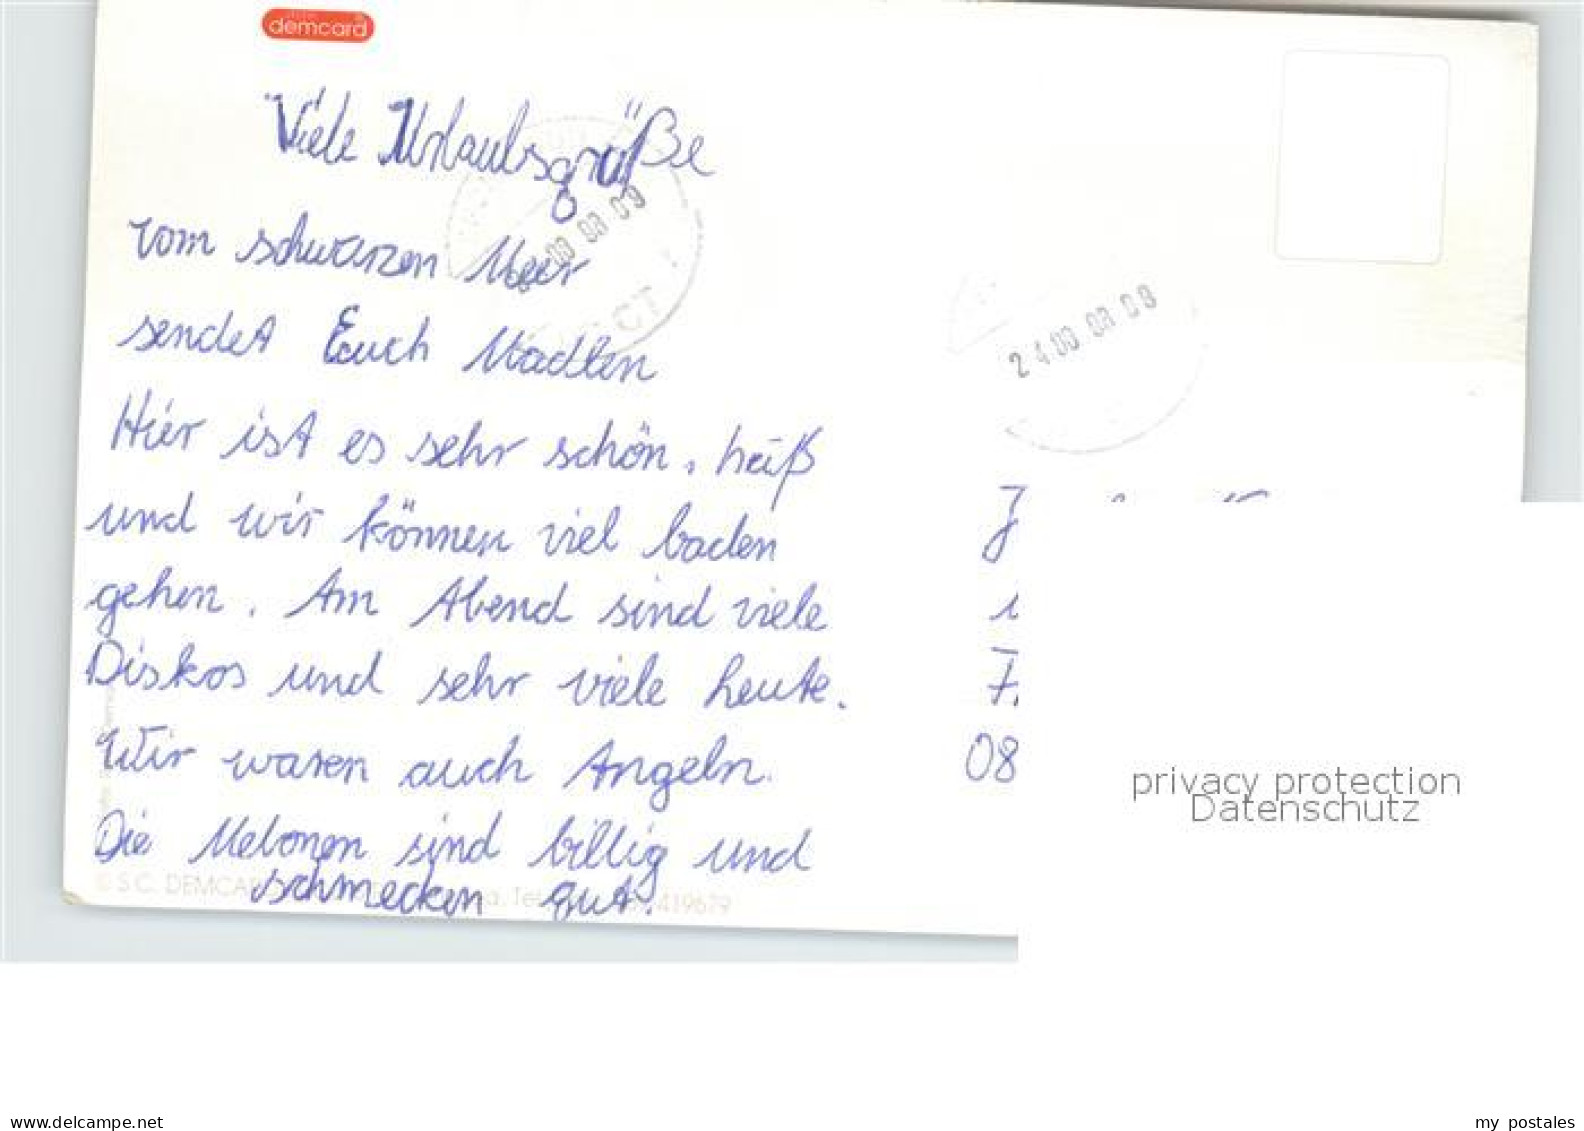 demcard
Viele Urlaubsgrüße
vom schwarzen Meer
sendet Euch Madlen
Hier ist es sehr schön, heiß
und wir können viel baden
gehen. Am Abend sind viele
Diskos und sehr viele heute.
Wir waren auch Angeln.
Die Melonen sind billig und
schmecken gut.
© S.C. DEMCARD
419679
08
privacy protection
Datenschutz
www.delcampe.net
my postales